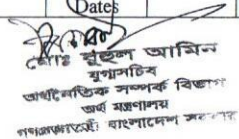 Dates
মোঃ রুহুল আমিন
যুগ্মসচিব
অর্থনৈতিক সম্পর্ক বিভাগ
অর্থ মন্ত্রণালয়
গণপ্রজাতন্ত্রী বাংলাদেশ সরকার